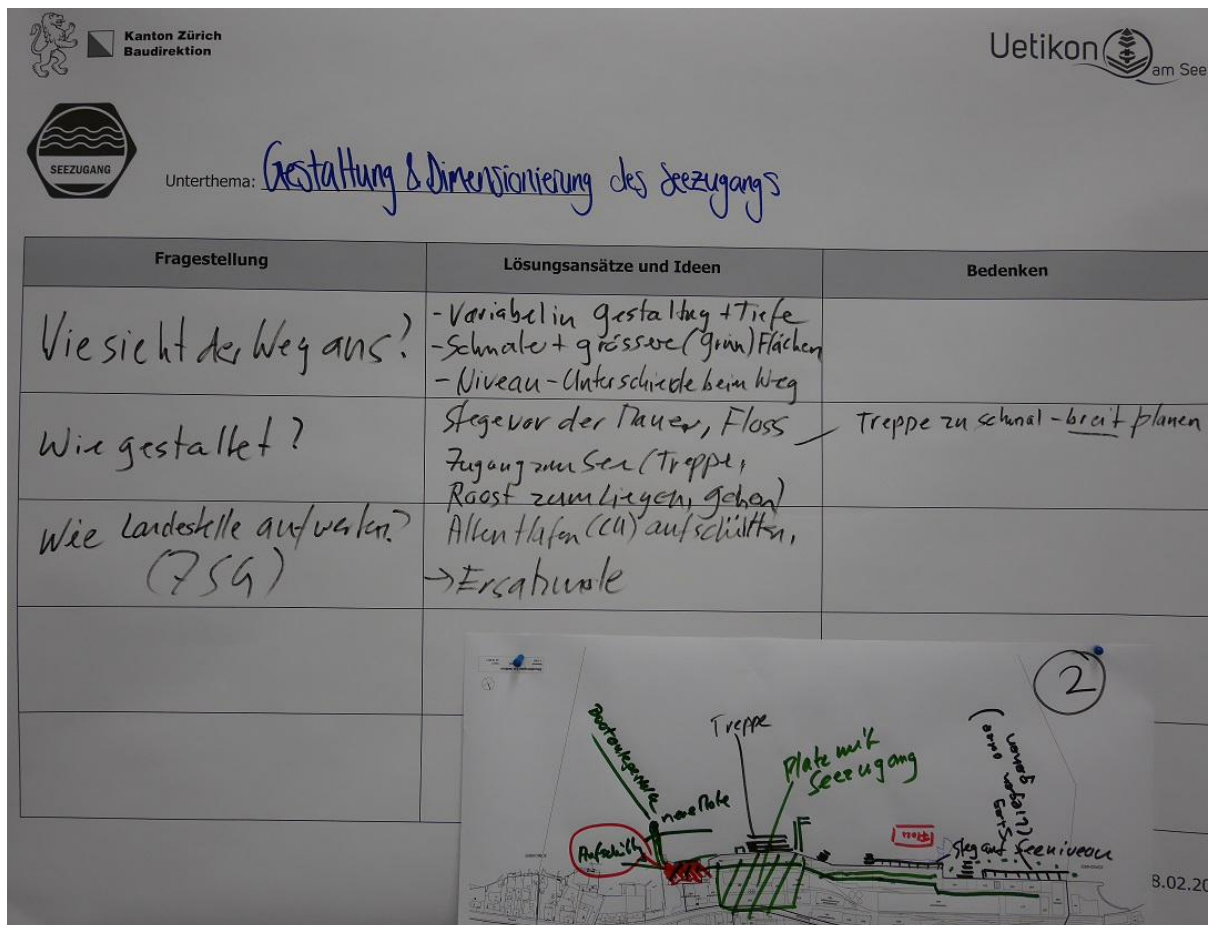 Kanton Zürich
Baudirektion
Uetikon
am See
SEEZUGANG
Unterthema: Gestaltung & Dimensionierung des Seezugangs
Fragestellung
Lösungsansätze und Ideen
Bedenken
Wie sieht der Weg aus?
- Variabel in Gestaltug + Tiefe
- Schmale + grössere (grün) Flächen
- Niveau-Unterschiede beim Weg
Wie gestaltet?
Stege vor der Mauer, Floss
Zugang zum See (Treppe,
Roost zum Liegen, gehen)
Treppe zu schmal - breit planen
Wie Landestelle aufwerten?
(ZSG)
Alten Hafen (CU) aufschütten,
→ Ersatzmole
2
Treppe
Platz mit
Seezugang
neue Mole
Aufschütt
Floss
Steg auf Seeniveau
8.02.20